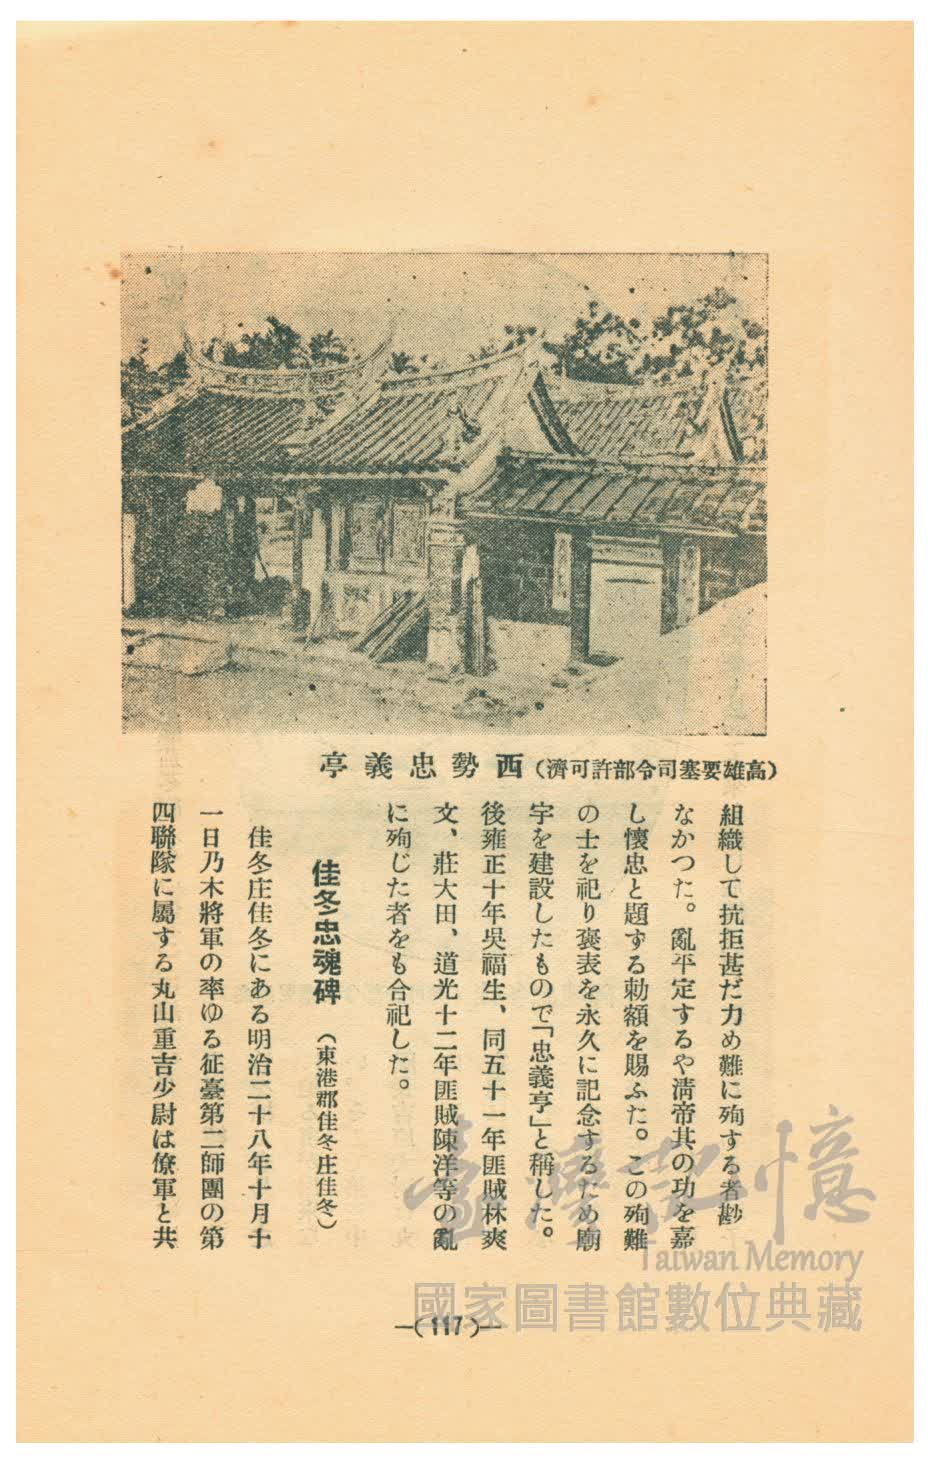 西勢忠義亭(高雄要塞司令部許可濟)
組織して抗拒甚だ力め難に殉する者尠
なかつた。亂平定するや淸帝其の功を嘉
し懷忠と題する勅額を賜ふた。この殉難
の士を祀り褒表を永久に記念するため廟
宇を建設したもので「忠義亭」と稱した。
後雍正十年吳福生、同五十一年匪賊林爽
文、莊大田、道光十二年匪賊陳洋等の亂
に殉じた者をも合祀した。
佳冬忠魂碑 (東港郡佳冬庄佳冬)
佳冬庄佳冬にある明治二十八年十月十
一日乃木將軍の率ゆる征臺第二師團の第
四聯隊に屬する丸山重吉少尉は僚軍と共
—(117)—
臺灣記憶
Taiwan Memory
國家圖書館數位典藏